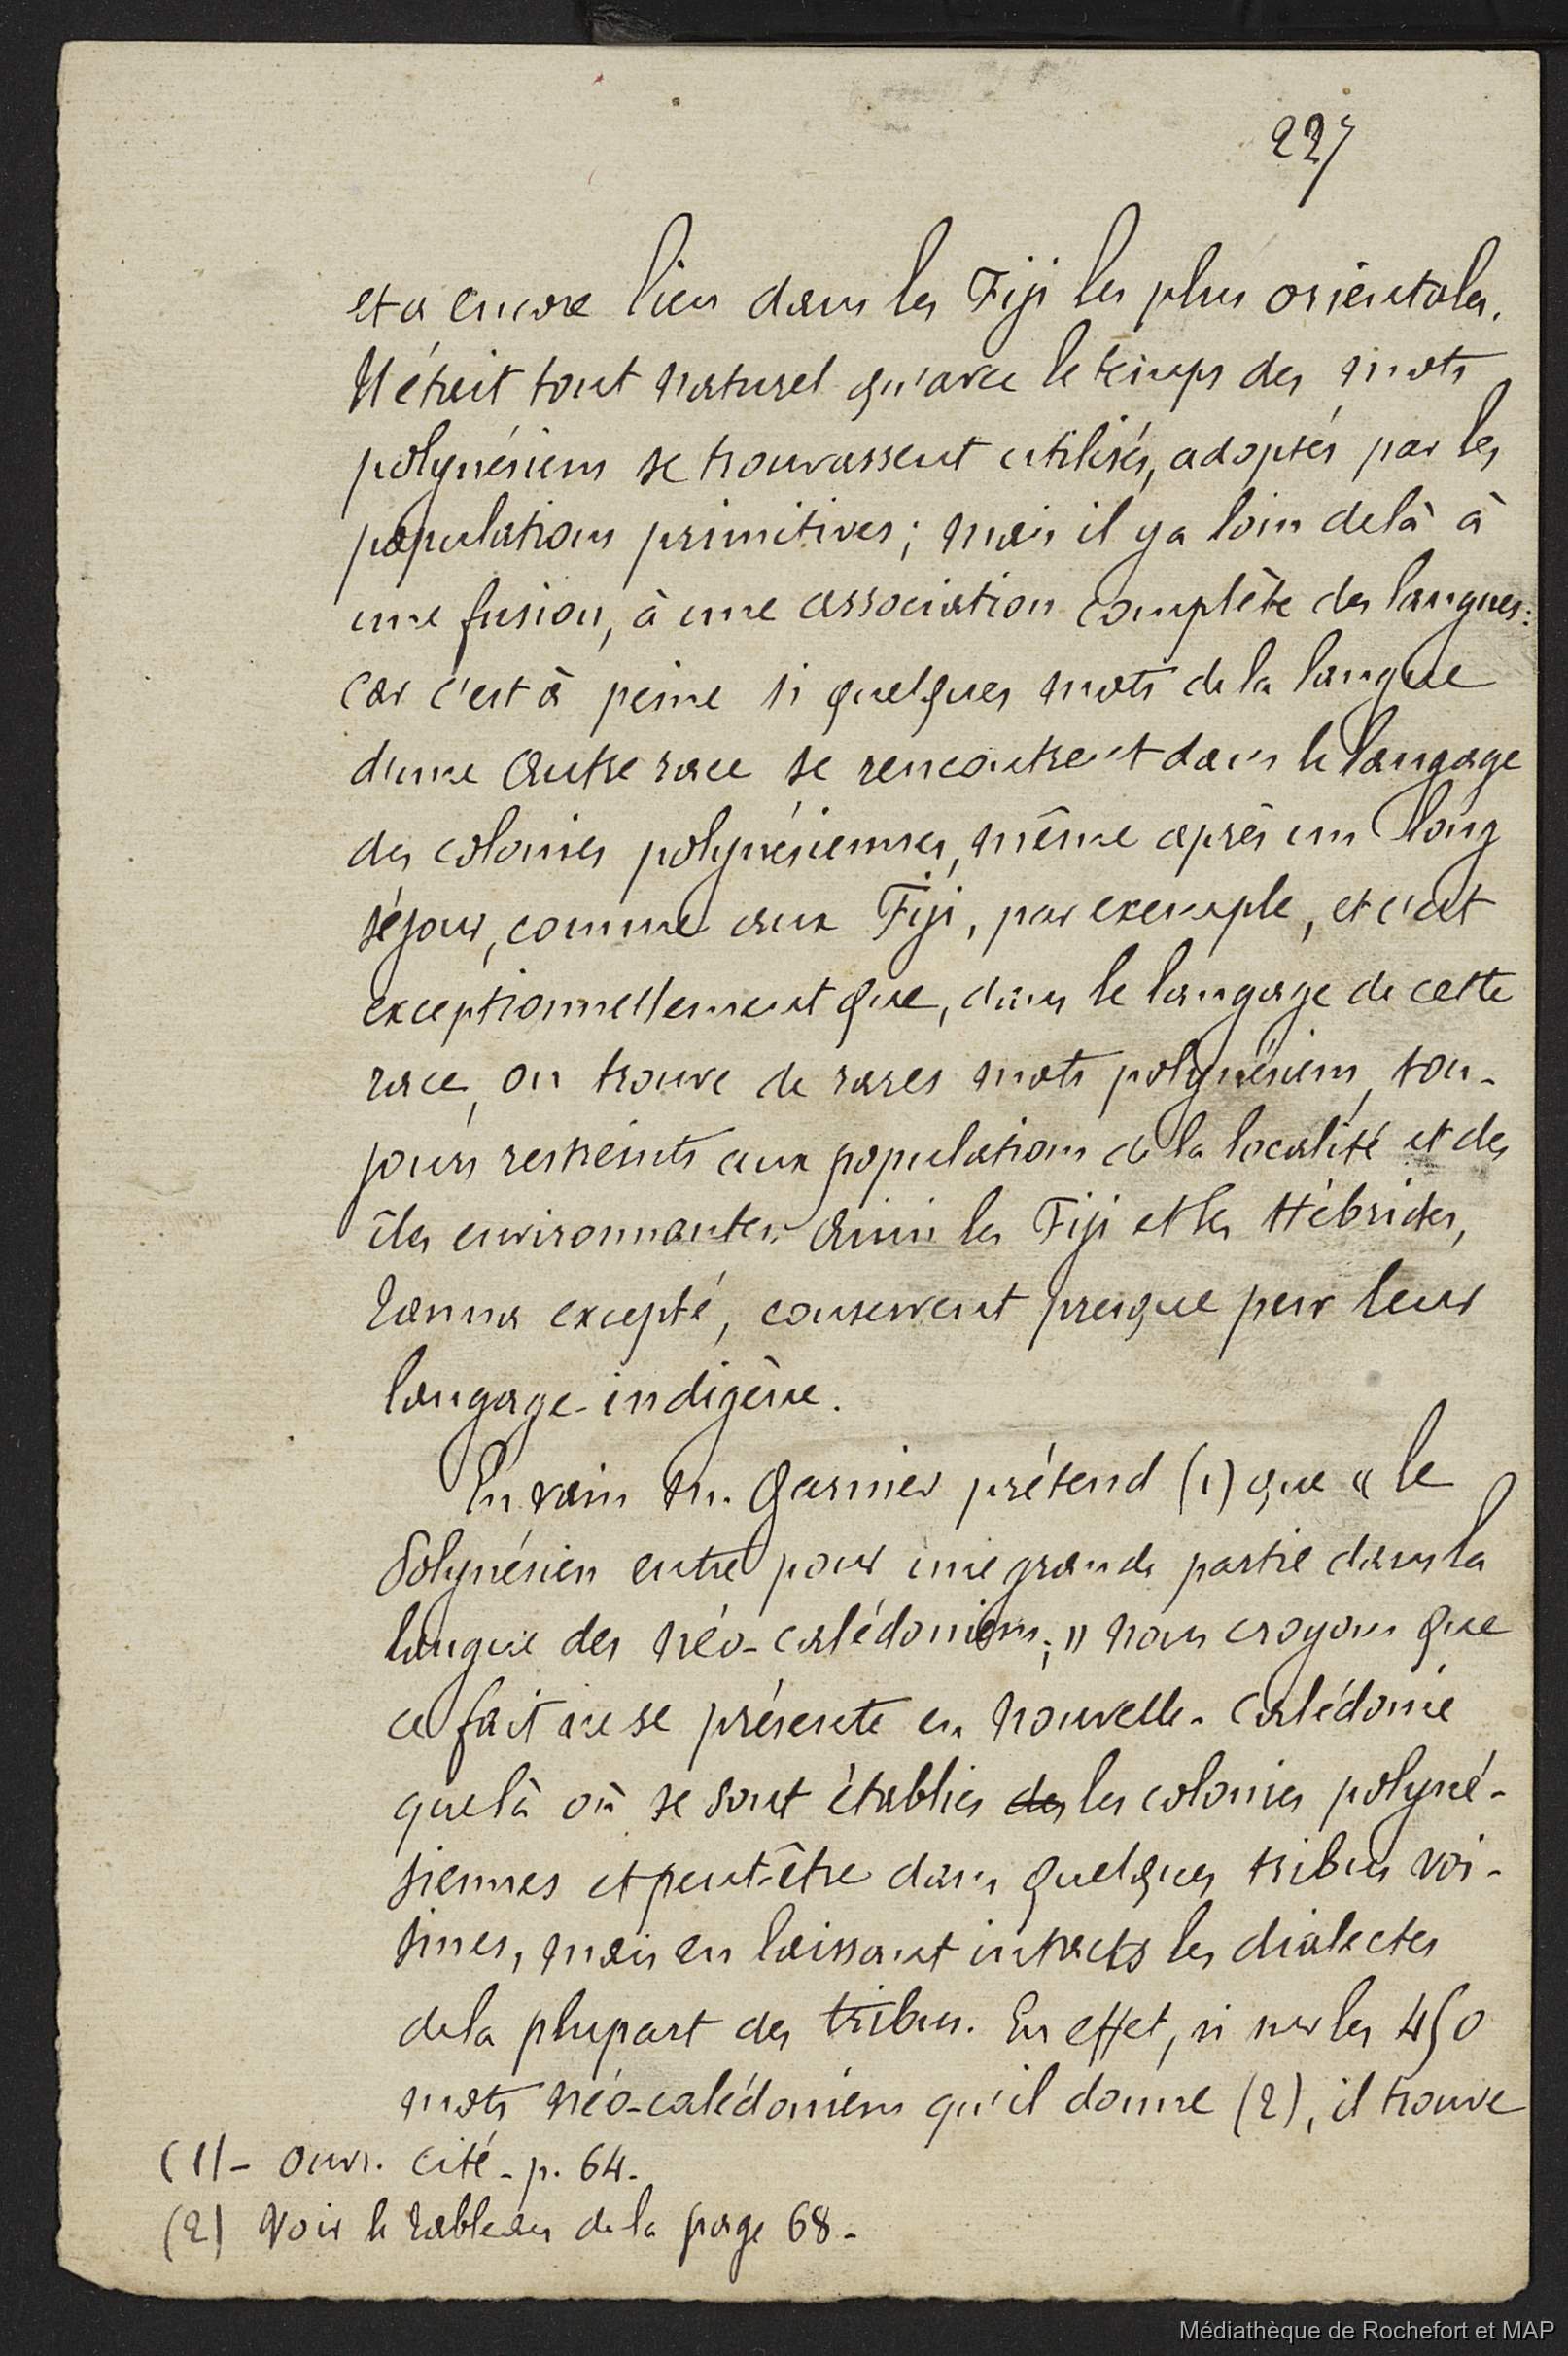 227
et a encore lieu dans les Fiji les plus orientales.
Il était tout naturel qu'avec le temps des mots
polynésiens se trouvassent utilisés, adoptés par les
populations primitives; mais il y a loin de là à
une fusion, à une association complète des langues:
car c'est à peine si quelques mots de la langue
d'une autre race se rencontrent dans le langage
des colonies polynésiennes, même après un long
séjour, comme aux Fiji, par exemple, et c'est
exceptionnellement que, dans le langage de cette
race, on trouve de rares mots polynésiens, tou-
jours restreints aux populations de la localité et des
îles environnantes. Ainsi les Fiji et les Hébrides,
Tanna excepté, conservent presque pur leur
langage indigène.
En vain M. Garnier prétend (1) que « le
Polynésien entre pour une grande partie dans la
langue des néo-calédoniens; » nous croyons que
ce fait ne se présente en Nouvelle-Calédonie
que là où se sont établies des les colonies polyné-
siennes et peut-être dans quelques tribus voi-
sines, mais en laissant intacts les dialectes
de la plupart des tribus. En effet, si sur les 450
mots néo-calédoniens qu'il donne (2), il trouve
(1) - Ouvr. cité - p. 64 -
(2) Voir le tableau de la page 68 -
Médiathèque de Rochefort et MAP